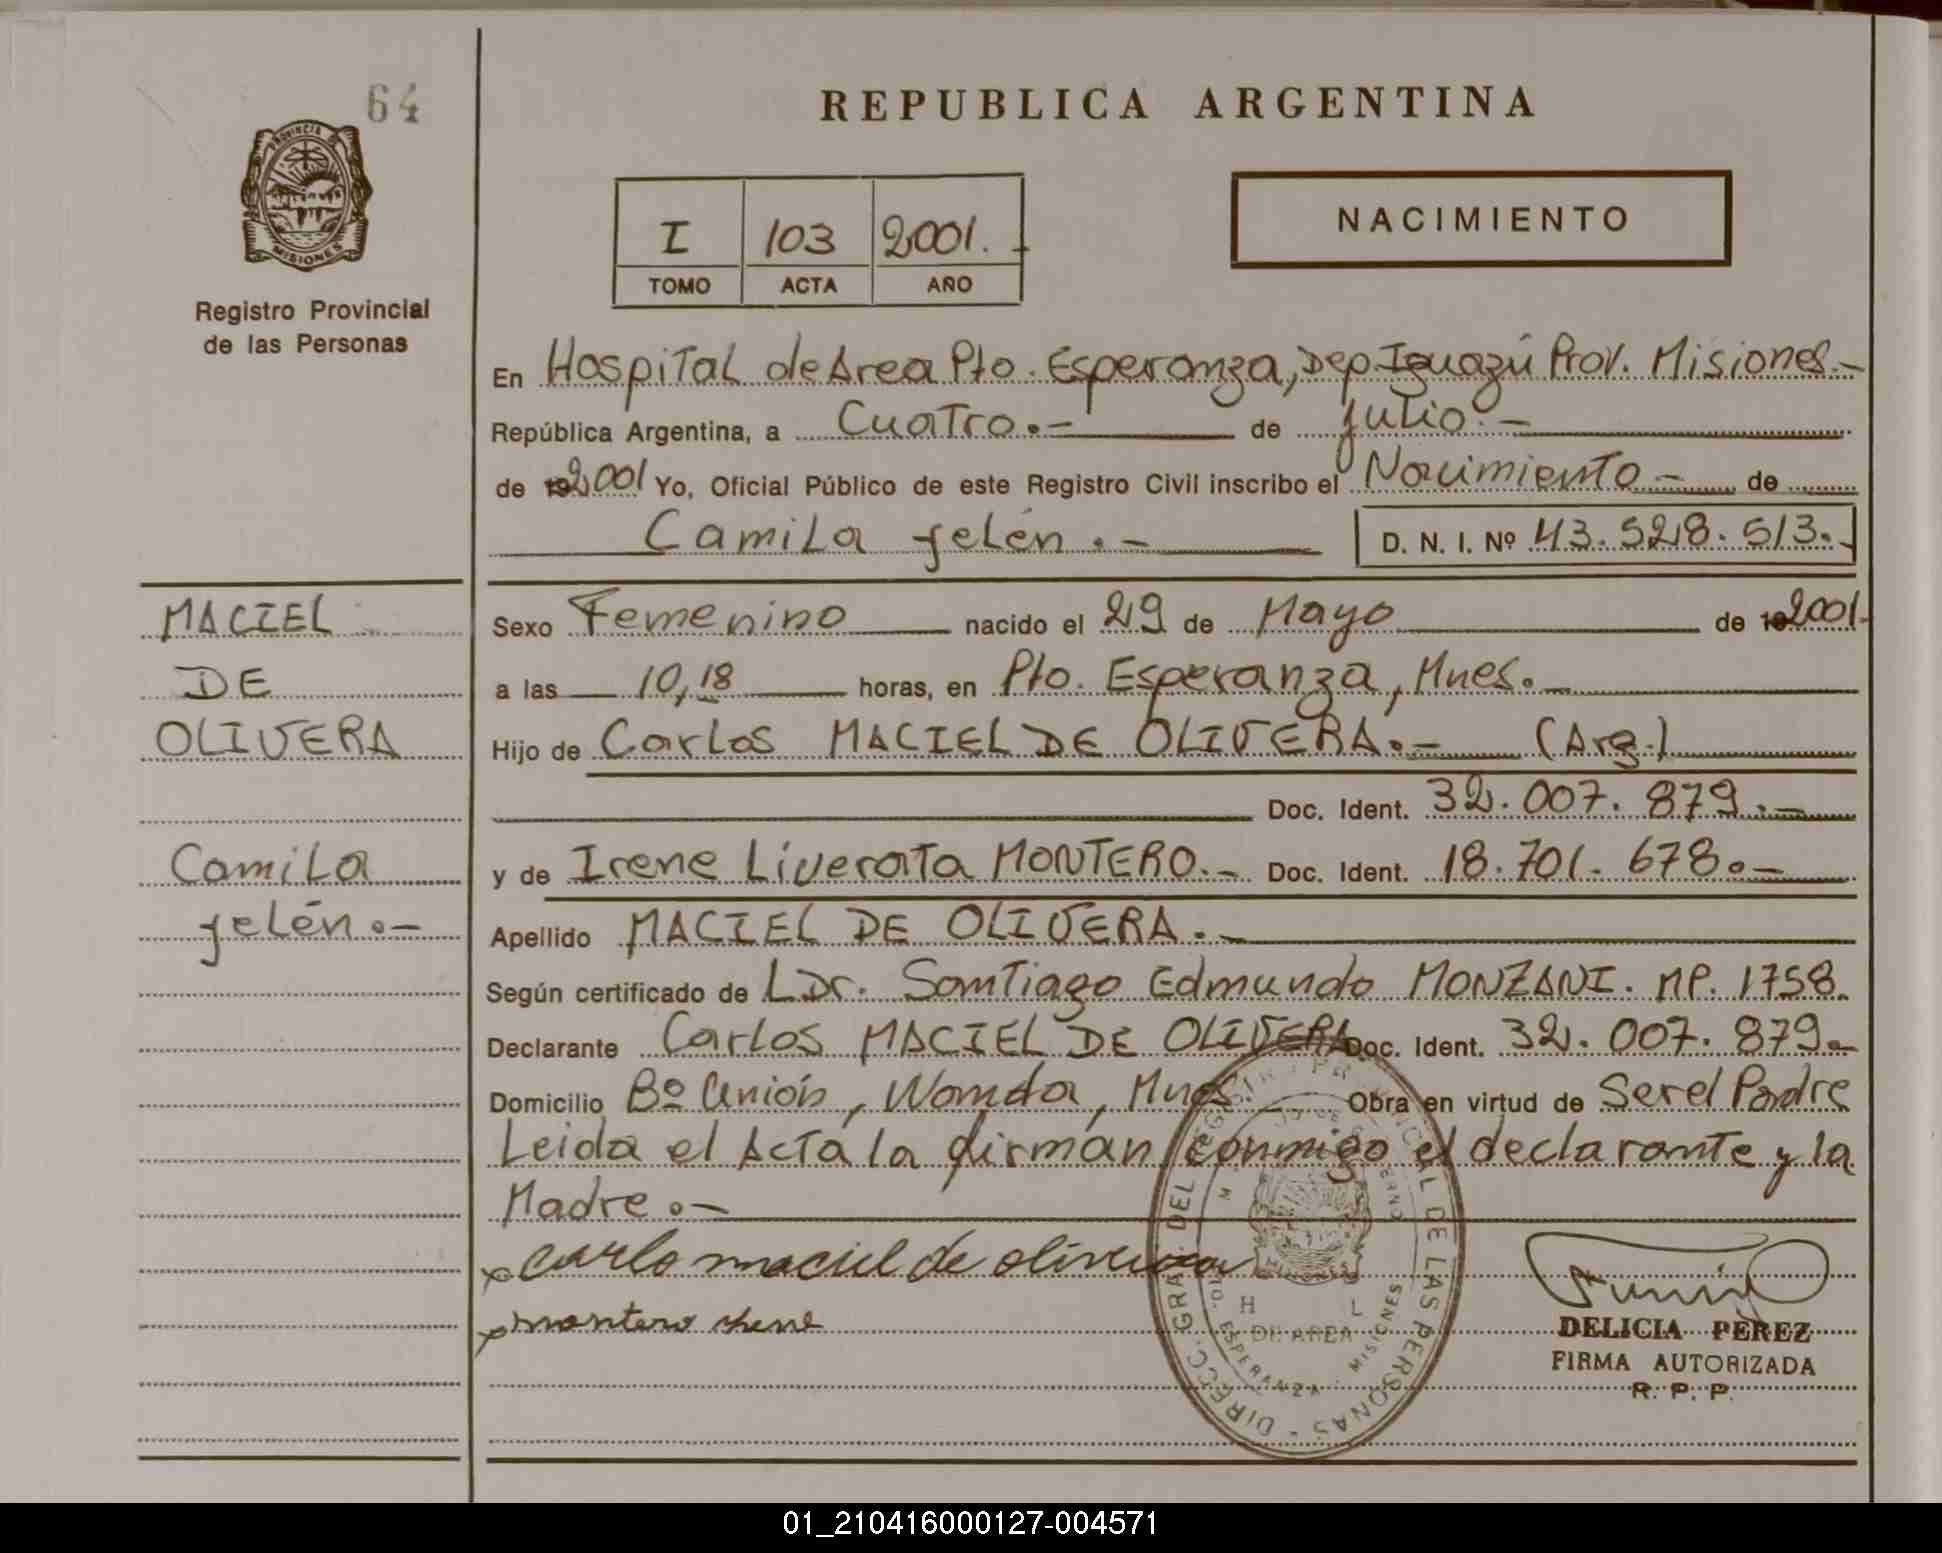 64
REPUBLICA ARGENTINA
PROVINCIA DE
MISIONES
Registro Provincial
de las Personas
I 103 2001.
TOMO ACTA AÑO
NACIMIENTO
En Hospital de Area Pto. Esperanza, Dep. Iguazú Prov. Misiones.-
República Argentina, a Cuatro.- de julio.-
de 2001 Yo, Oficial Público de este Registro Civil inscribo el Nacimiento - de
Camila yelén.- D. N. I. Nº 43.528.513.-
MACIEL
DE
OLIVERA
Camila
yelén.-
Sexo Femenino nacido el 29 de Mayo de 2001-
a las 10,18 horas, en Pto. Esperanza, Mnes.-
Hijo de Carlos MACIEL DE OLIVERA.- (Arg.)
Doc. Ident. 32.007.879.-
y de Irene Liverata MONTERO.- Doc. Ident. 18.701.678.-
Apellido MACIEL DE OLIVERA.-
Según certificado de L Dr. Santiago Edmundo MONZANI. MP. 1758.
Declarante Carlos MACIEL DE OLIVERA Doc. Ident. 32.007.879.-
Domicilio Bº Unión, Wanda, Mnes. - Obra en virtud de Ser el Padre
Leida el Acta la firman conmigo el declarante y la
Madre.-
x carlo maciel de oliveira
x montero irene
DIRECC. GRAL. DEL REGISTRO PROVINCIAL DE LAS PERSONAS -
H L
DE AREA
ESPERANZA - MISIONES
DELICIA PEREZ
FIRMA AUTORIZADA
R. P. P.
01_210416000127-004571